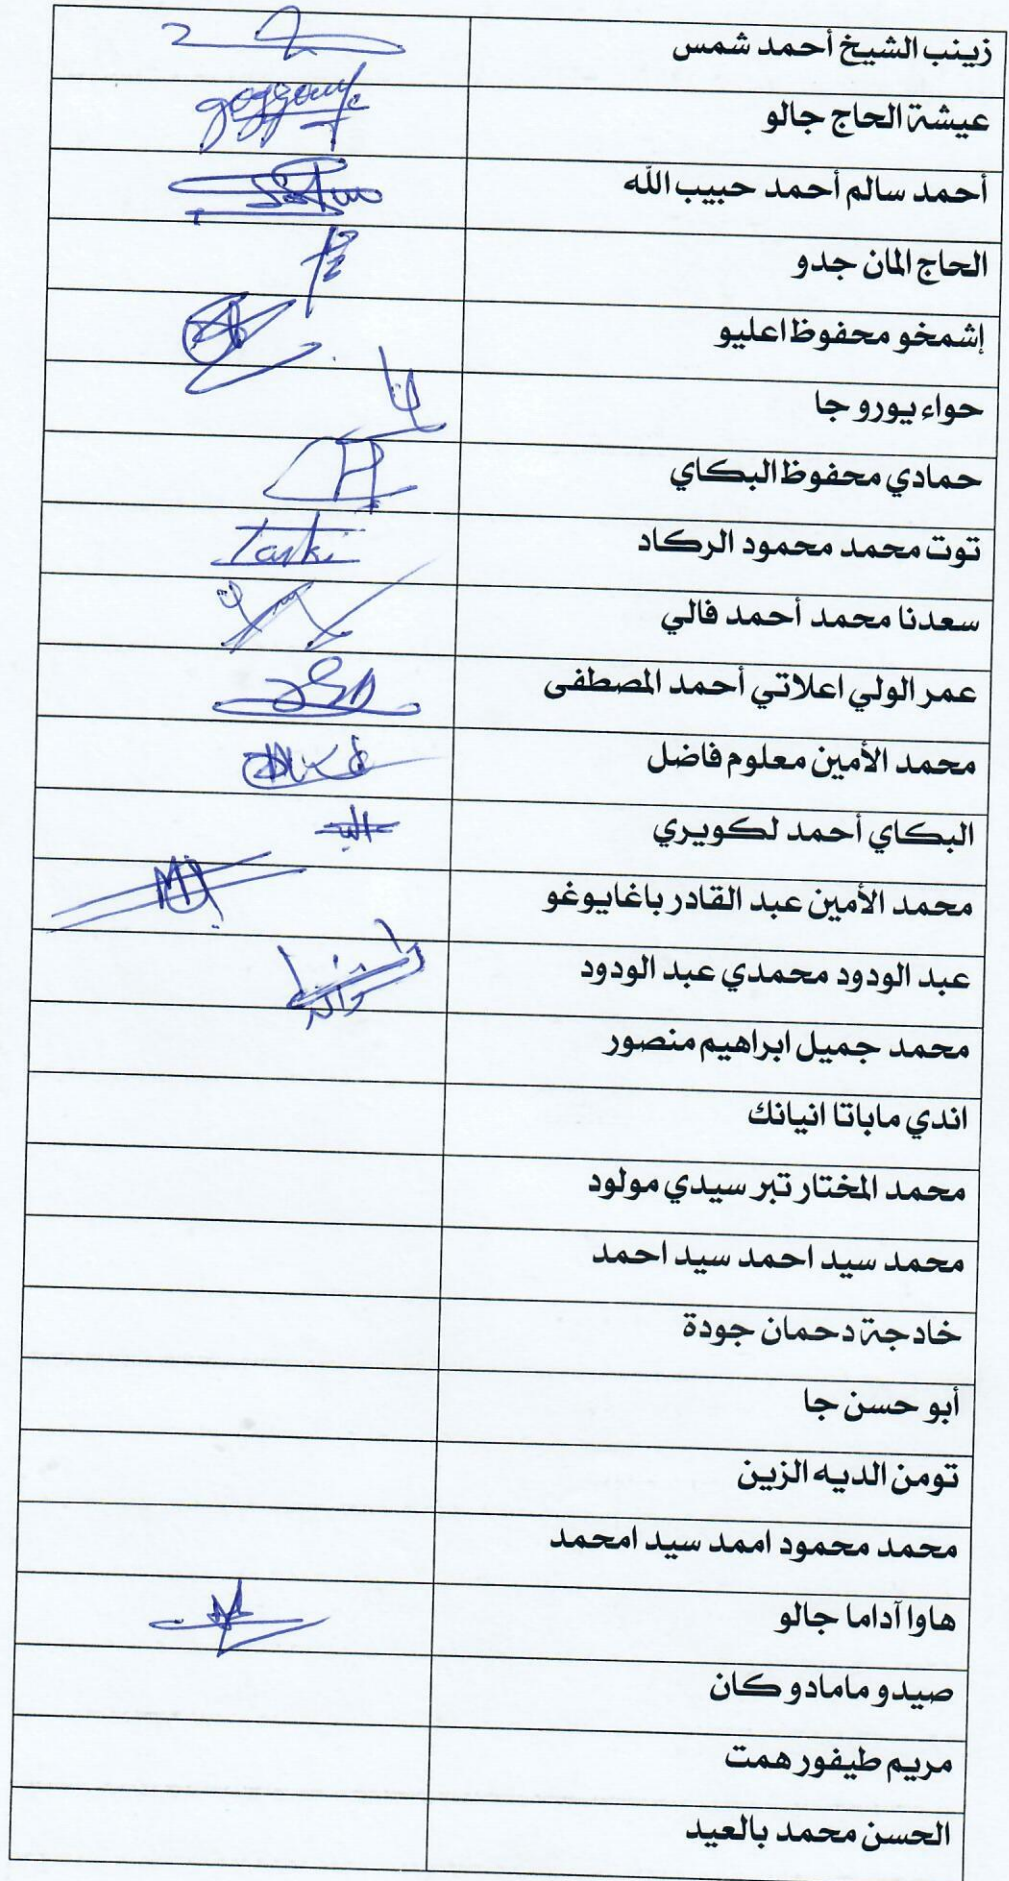 زينب الشيخ أحمد شمس
عيشة الحاج جالو
أحمد سالم أحمد حبيب الله
الحاج المان جدو
إشمخو محفوظ اعليو
حواء يورو جا
حمادي محفوظ البكاي
توت محمد محمود الركاد
Tarki
سعدنا محمد أحمد فالي
عمر الولي اعلاتي أحمد المصطفى
محمد الأمين معلوم فاضل
البكاي أحمد لكويري
محمد الأمين عبد القادر باغايوغو
عبد الودود محمدي عبد الودود
محمد جميل ابراهيم منصور
اندي ماباتا انيانك
محمد المختار تبر سيدي مولود
محمد سيد احمد سيد احمد
خادجة دحمان جودة
أبو حسن جا
تومن الديه الزين
محمد محمود اممد سيد امحمد
هاوا آداما جالو
صيدو مامادو كان
مريم طيفور همت
الحسن محمد بالعيد